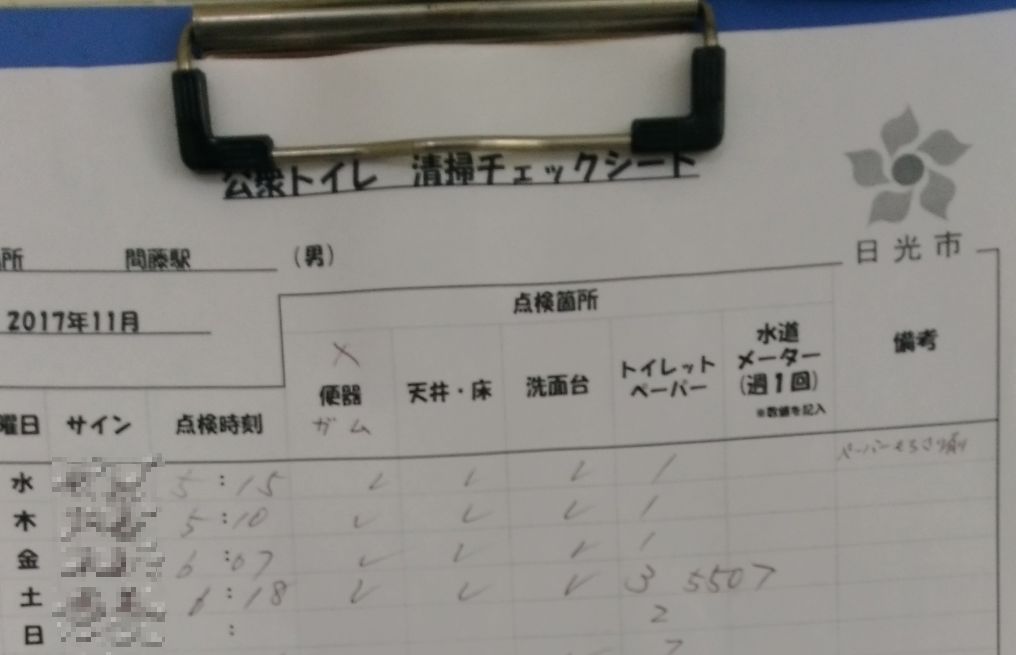 公衆トイレ 清掃チェックシート
日光市
所 間藤駅 (男)
2017年11月
点検箇所
備考
× 便器 ガム
天井・床
洗面台
トイレット
ペーパー
水道
メーター
(週1回)
※数値を記入
曜日 サイン 点検時刻
水 5:15 ✓ ✓ ✓ 1
木 5:10 ✓ ✓ ✓ 1
金 6:07 ✓ ✓ ✓ 1
土 6:18 ✓ ✓ ✓ 3 5507
日 : 2